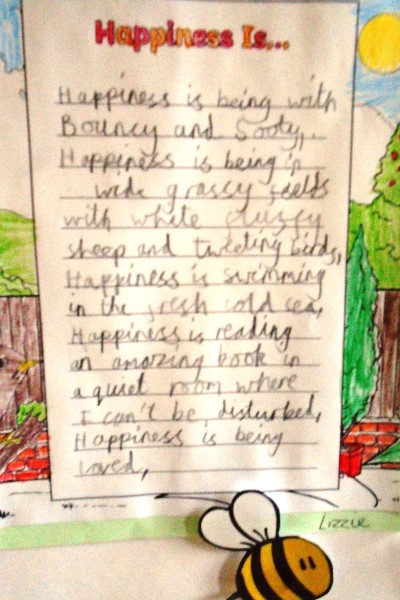 Happiness Is...
Happiness is being with
Bouncy and Sooty,.
Happiness is being in
wide grassy fields
with white fluffy
sheep and tweeting birds,
Happiness is swimming
in the fresh cold sea,
Happiness is reading
an amazing book in
a quiet room where
I can't be disturbed,
Happiness is being
loved,
Lizzie